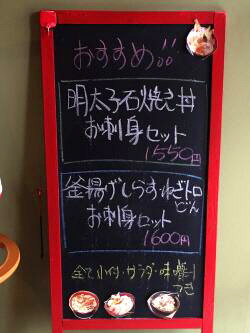 おすすめ!!
明太子石焼き丼
お刺身セット
1550円
釜揚げしらす・ねぎトロ
どん
お刺身セット
1600円
全て小付・サラダ・味噌汁
つき